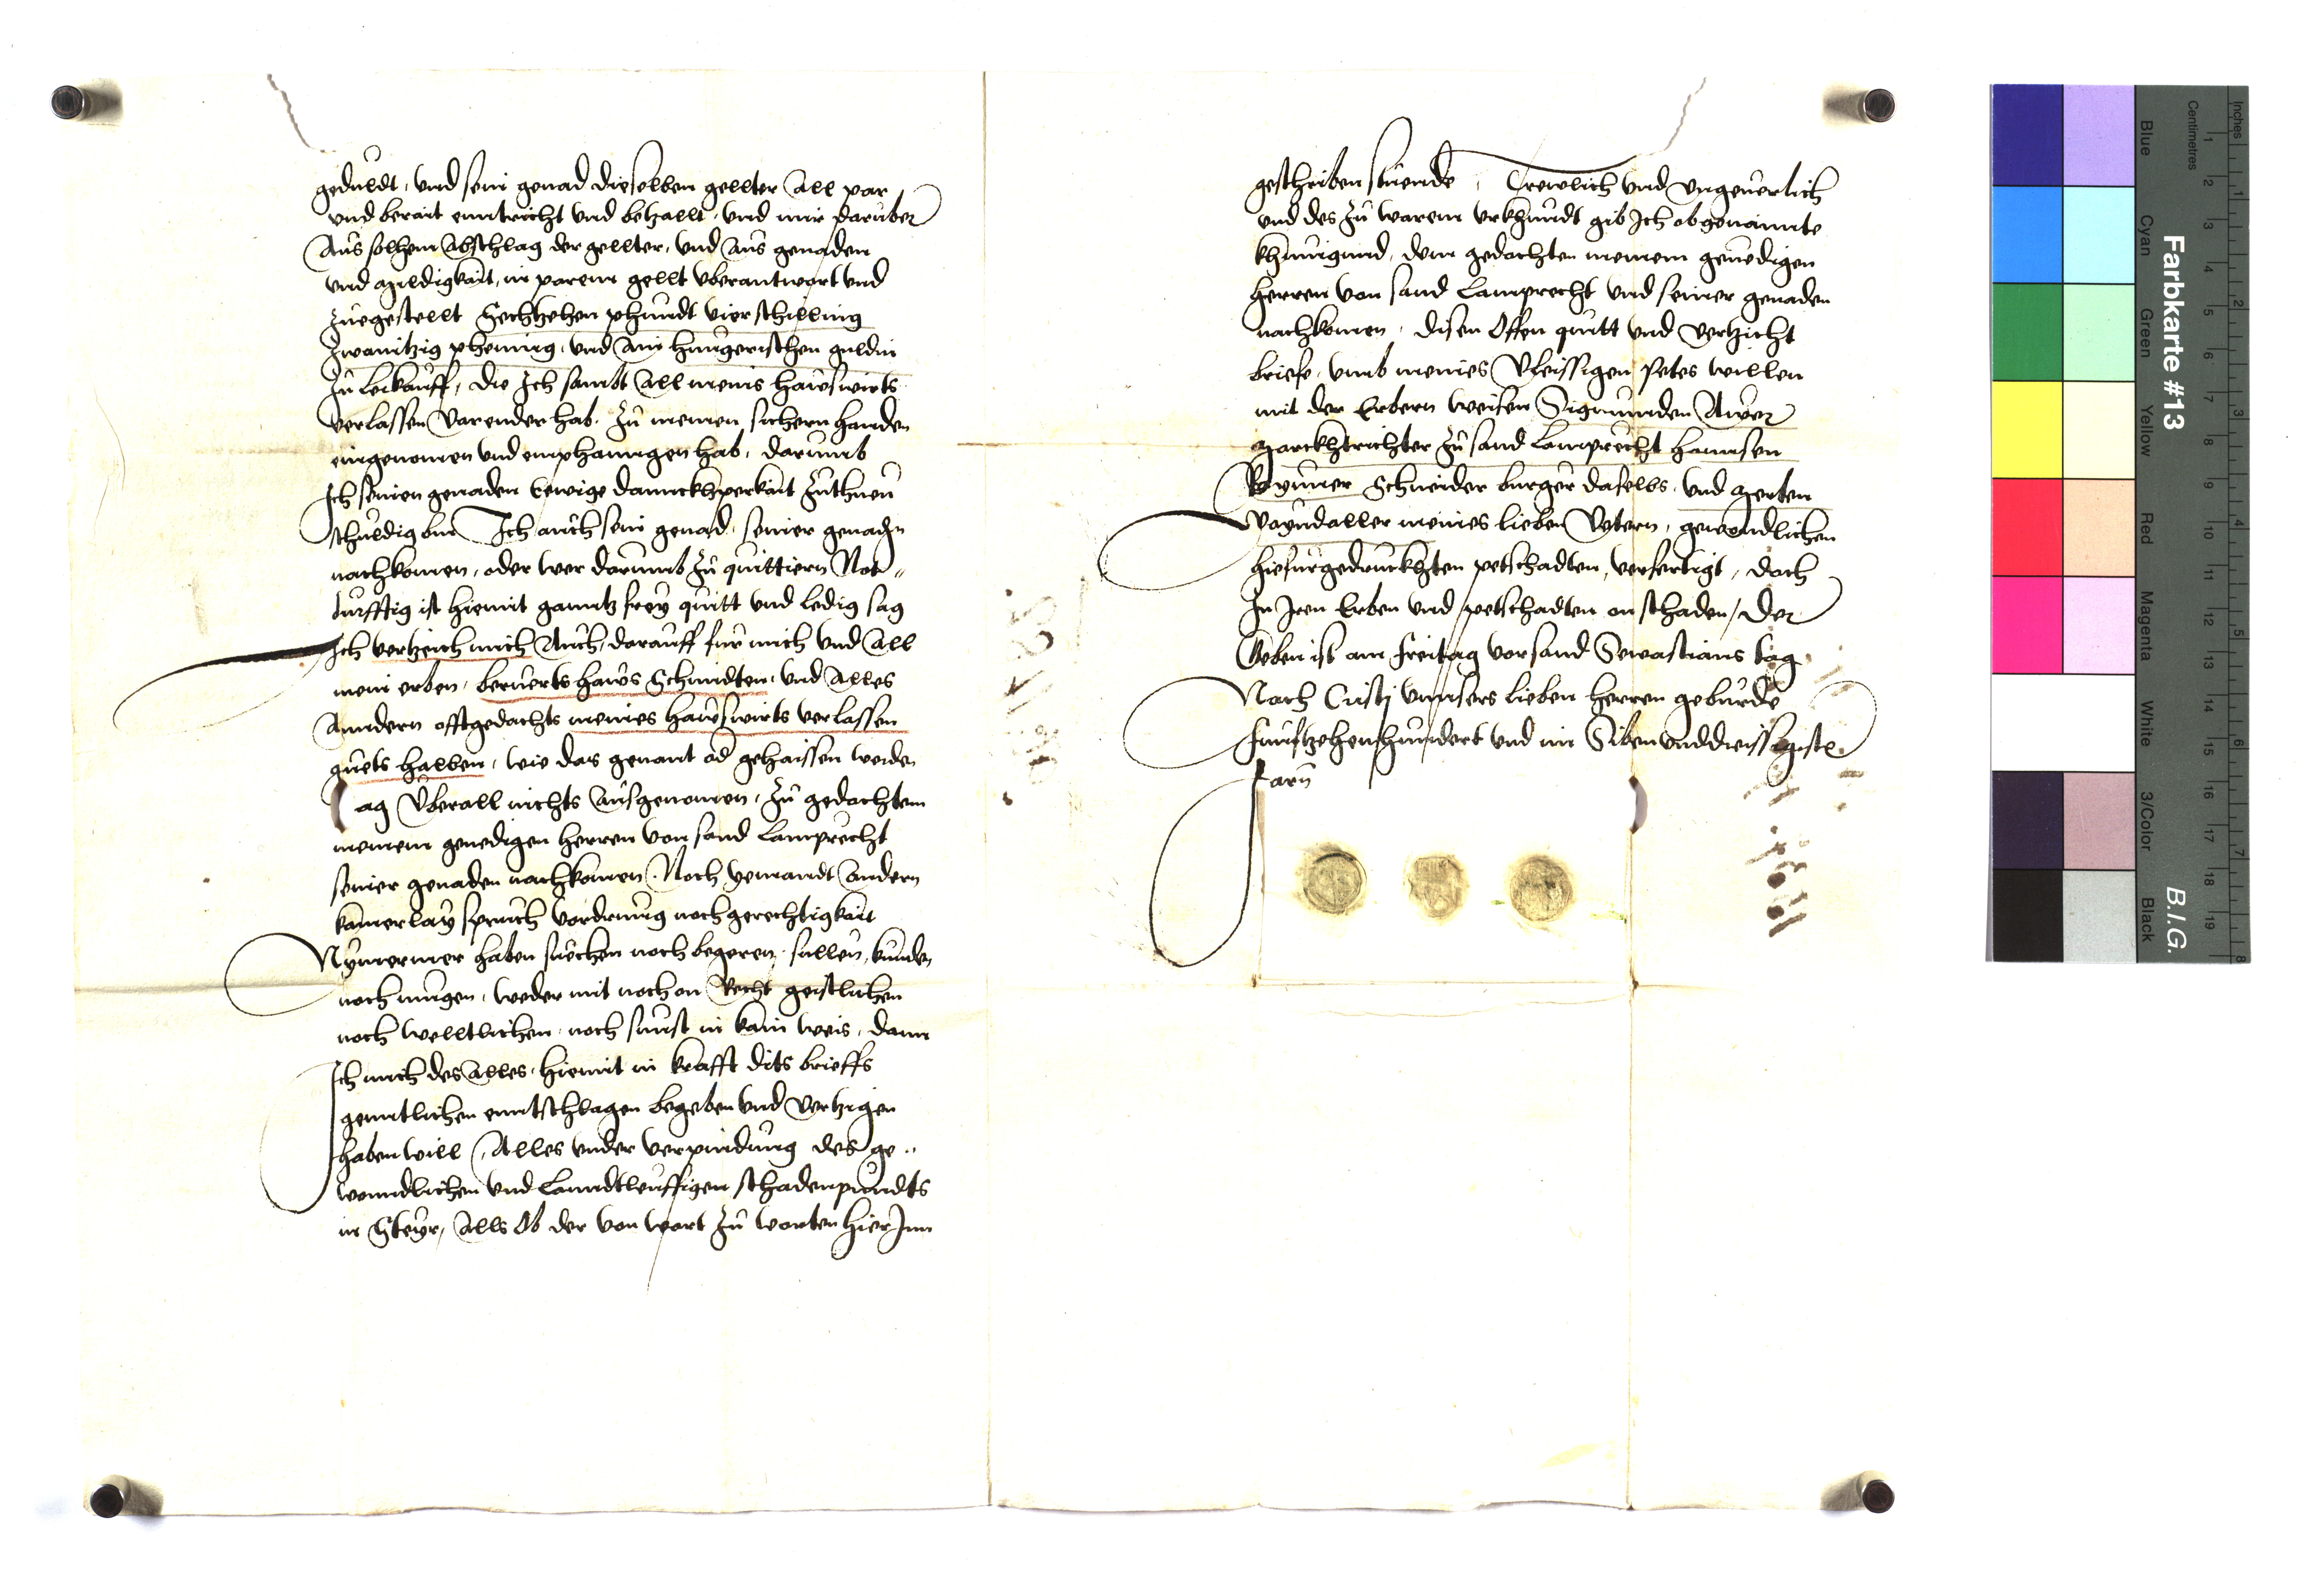 geduldt, und sein genad dieselben gellter all par
und berait enntricht und betzallt, und mir daruber
Aus solhem Abschlag der gellter, und aus genaden
und mildigkait, in parem gellt uberantwort und
zuegestellt Sechtzehen phundt vier schilling
zwaintzig phening, und ain hungerischen guldin
zu leikauff, die Ich sambt all meins hawswirts
verlassen varender hab, zu meinen sichern handen
eingenomen und emphanngen hab, darumb
Ich seinen genaden Eewige dannckhperkait zuthuen
schuldig bin Ich auch sein genad, seiner genadn
nachkomen, oder wer darumb zu quittiern Not-
turfftig ist hiemit ganntz frey quitt und ledig sag
Ich vertzeich mich Auch, darauff fur mich und all
mein erben, beruerts haws Schmidten, und Alles
Anndern offtgedachts meines hawswirts verlassen
guets halben, wie das genant od gehaissen werden
mag Uberall nichts Ausgenomen, zu gedachtem
meinem genedigen herren von sand Lamprecht
seiner genaden nachkomen, Noch yemandt Andern
kainerlay spruch vordrung noch gerechtigkait
Nymermer haben suechen noch begeren, sullen, kunden
noch mugen, weder mit noch on Recht geistlichen
noch welltlichen, noch sunst in kain weis, dann
Ich mich des Alles, hiemit in krafft dits brieffs
genntlichen enntschlagen begeben und vertzigen
haben will, Alles under verpindung des ge-
wonndlichen und Lanndtleuffigen schadenpundts
in Steyr, Alls Ob der von wort zu worten hierInn
geschriben stuende, Trewlich und ungeverlich
und des zu warem urkhundt gib Ich obgenannte
khunigund, dem gedachten meinem genedigen
herren von sand Lamprecht und seiner genaden
nachkomen, disen Offen quitt und vertzicht
briefe, umb meines Vleissigen petes willen
mit der Erbern weisen Sigmunden Awer
Marckhtrichter zu sand Lamprecht hannsen
Schneider burger daselbs, und Merten
meines lieben Vettern, gewondlichen
hiefurgedruckhten petschadten, verfertigt, doch
In Iren Erben und petschadten on schaden, Der
Geben ist am Freitag vor sand Sewastians tag
Nach Cristj unnsers lieben herren geburde
Funftzehenhundert und im Sibenunddreissigisten
Jarn